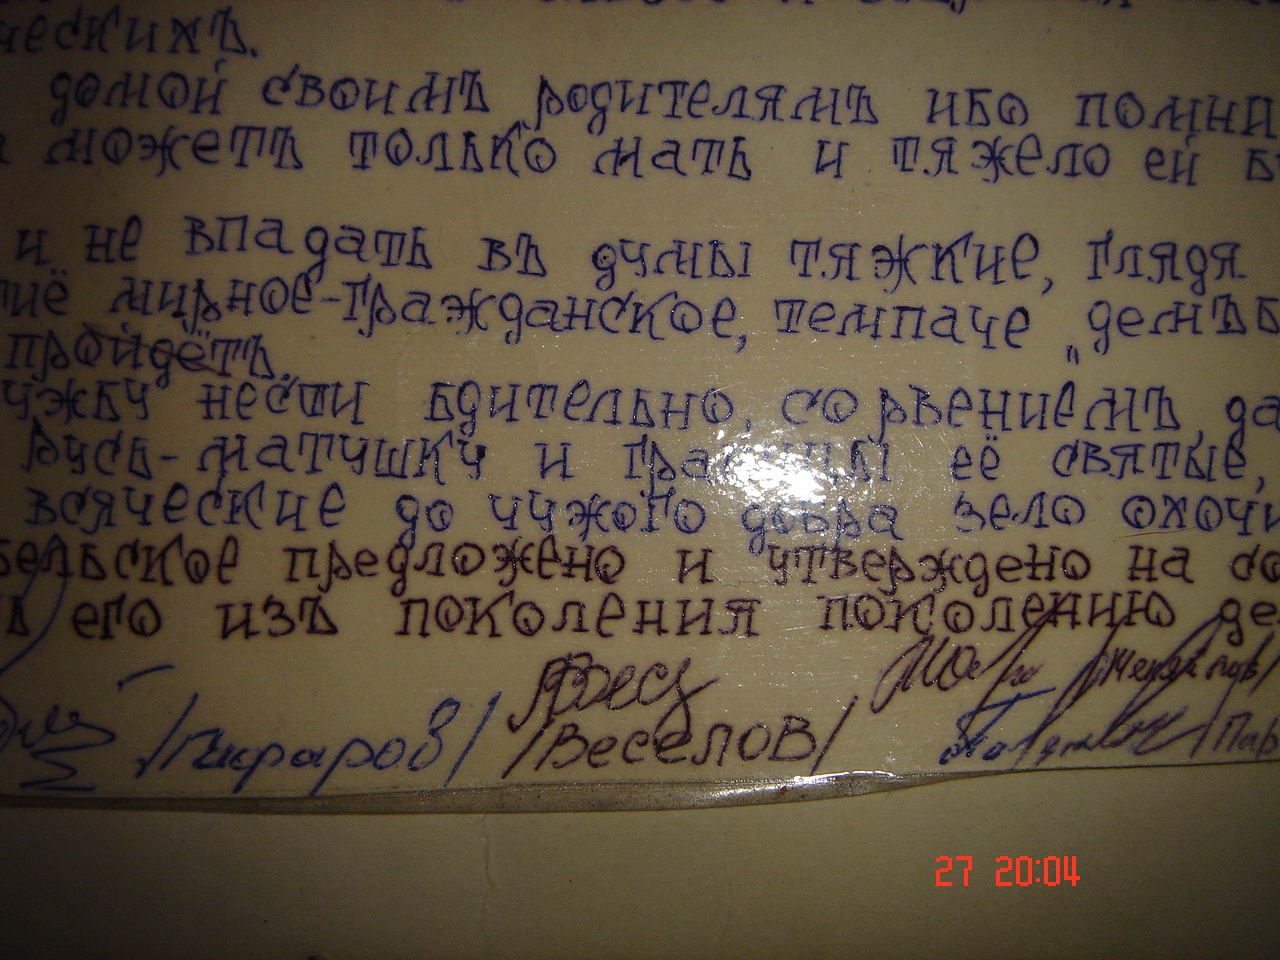 ческихъ.
домой своимъ родителямъ ибо помни
можетъ только мать и тяжело ей б
и не впадать въ думы тяжкие, глядя
тиё мирное-гражданское, темпаче „демъб
пройдётъ.
ужбу нести бдительно, со рвениемъ, да
Русь-матушку и границы её святые,
всяческие до чужого добра зело охочи
бельское предложено и утверждено на со
его изъ поколения поколению де
/Гирфаров/ /Веселов/
27 20:04